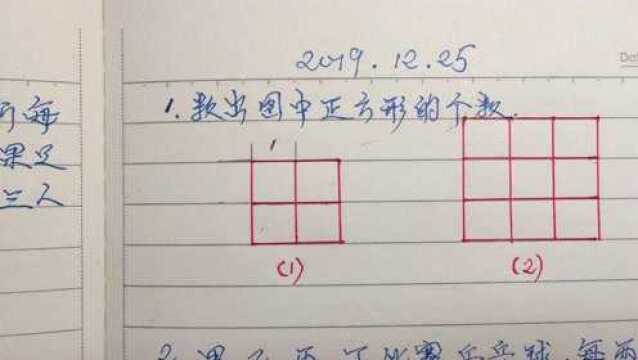 2019.12.25
Dat
每
果足
三人
1. 数出图中正方形的个数.
1
(1)
(2)
2.